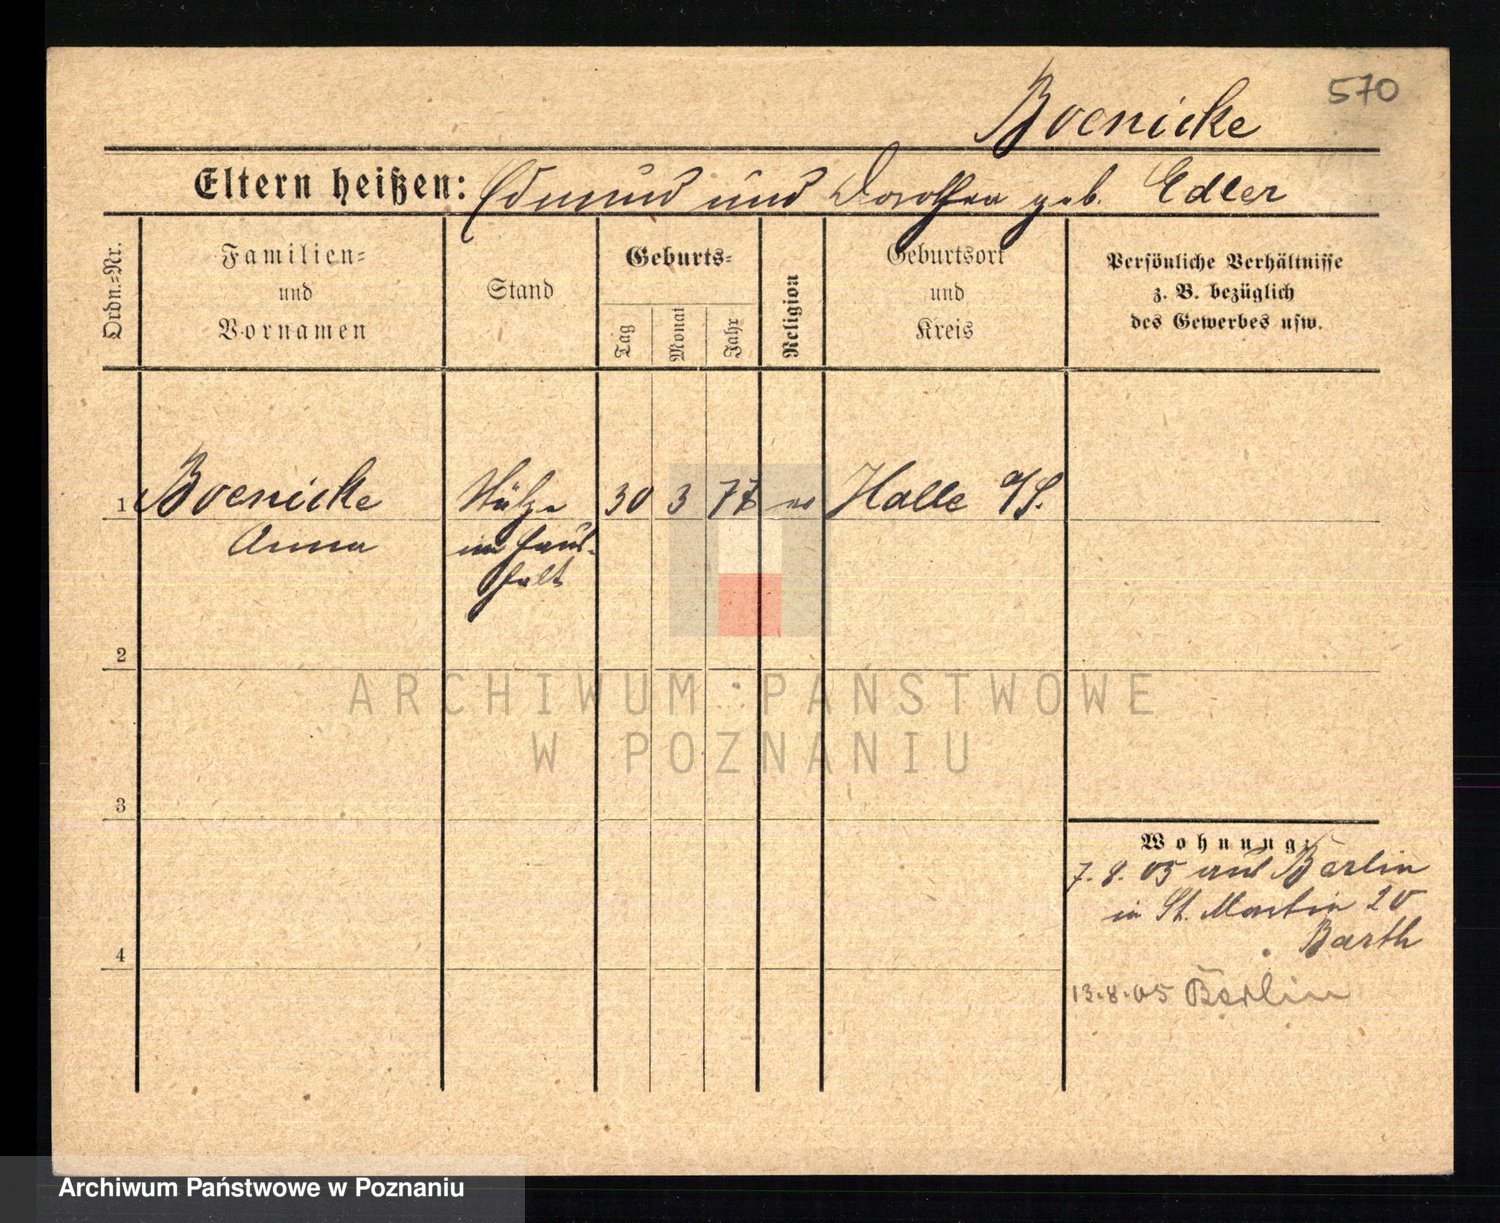 570
Boenicke
Eltern heißen: Edmund und Dorothea geb. Edler
Ordn.-Nr.
Familien-
und
Vornamen
Stand
Geburts-
Tag
Monat
Jahr
Religion
Geburtsort
und
Kreis
Persönliche Verhältnisse
z. B. bezüglich
des Gewerbes usw.
1 Boenicke Stütze 30 3 77 ev Halle a/S.
Anna im Haus-
halt
2
ARCHIWUM PAŃSTWOWE
W POZNANIU
3
Wohnung:
7. 8. 05 aus Berlin
in St. Martin 20
Barth
4
13.8.05 Berlin
Archiwum Państwowe w Poznaniu